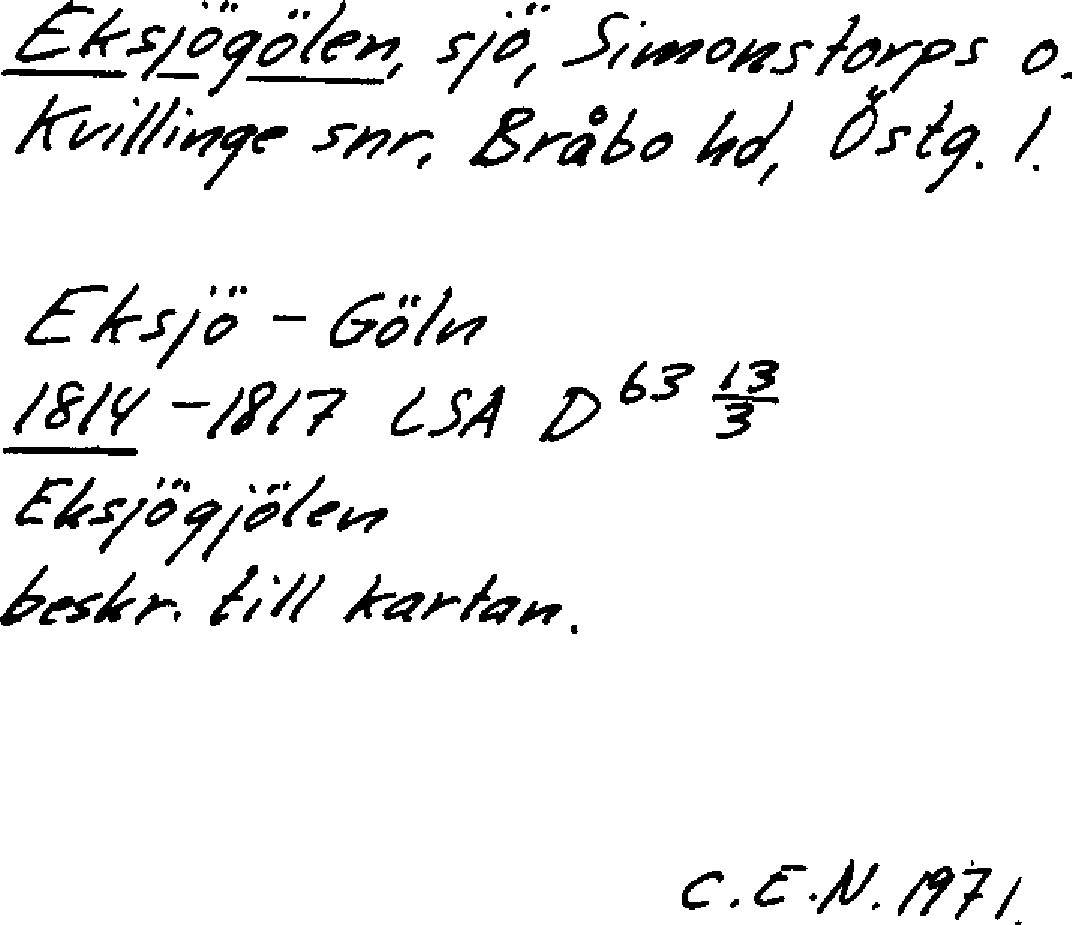 Eksjögölen, sjö, Simonstorps o.
Kvillinge snr, Bråbo hd, Östg. l.
Eksjö - Göln
1814 - 1817 LSA D 63 13/3
Eksjögjölen
beskr. till kartan.
C.E.N. 1971.